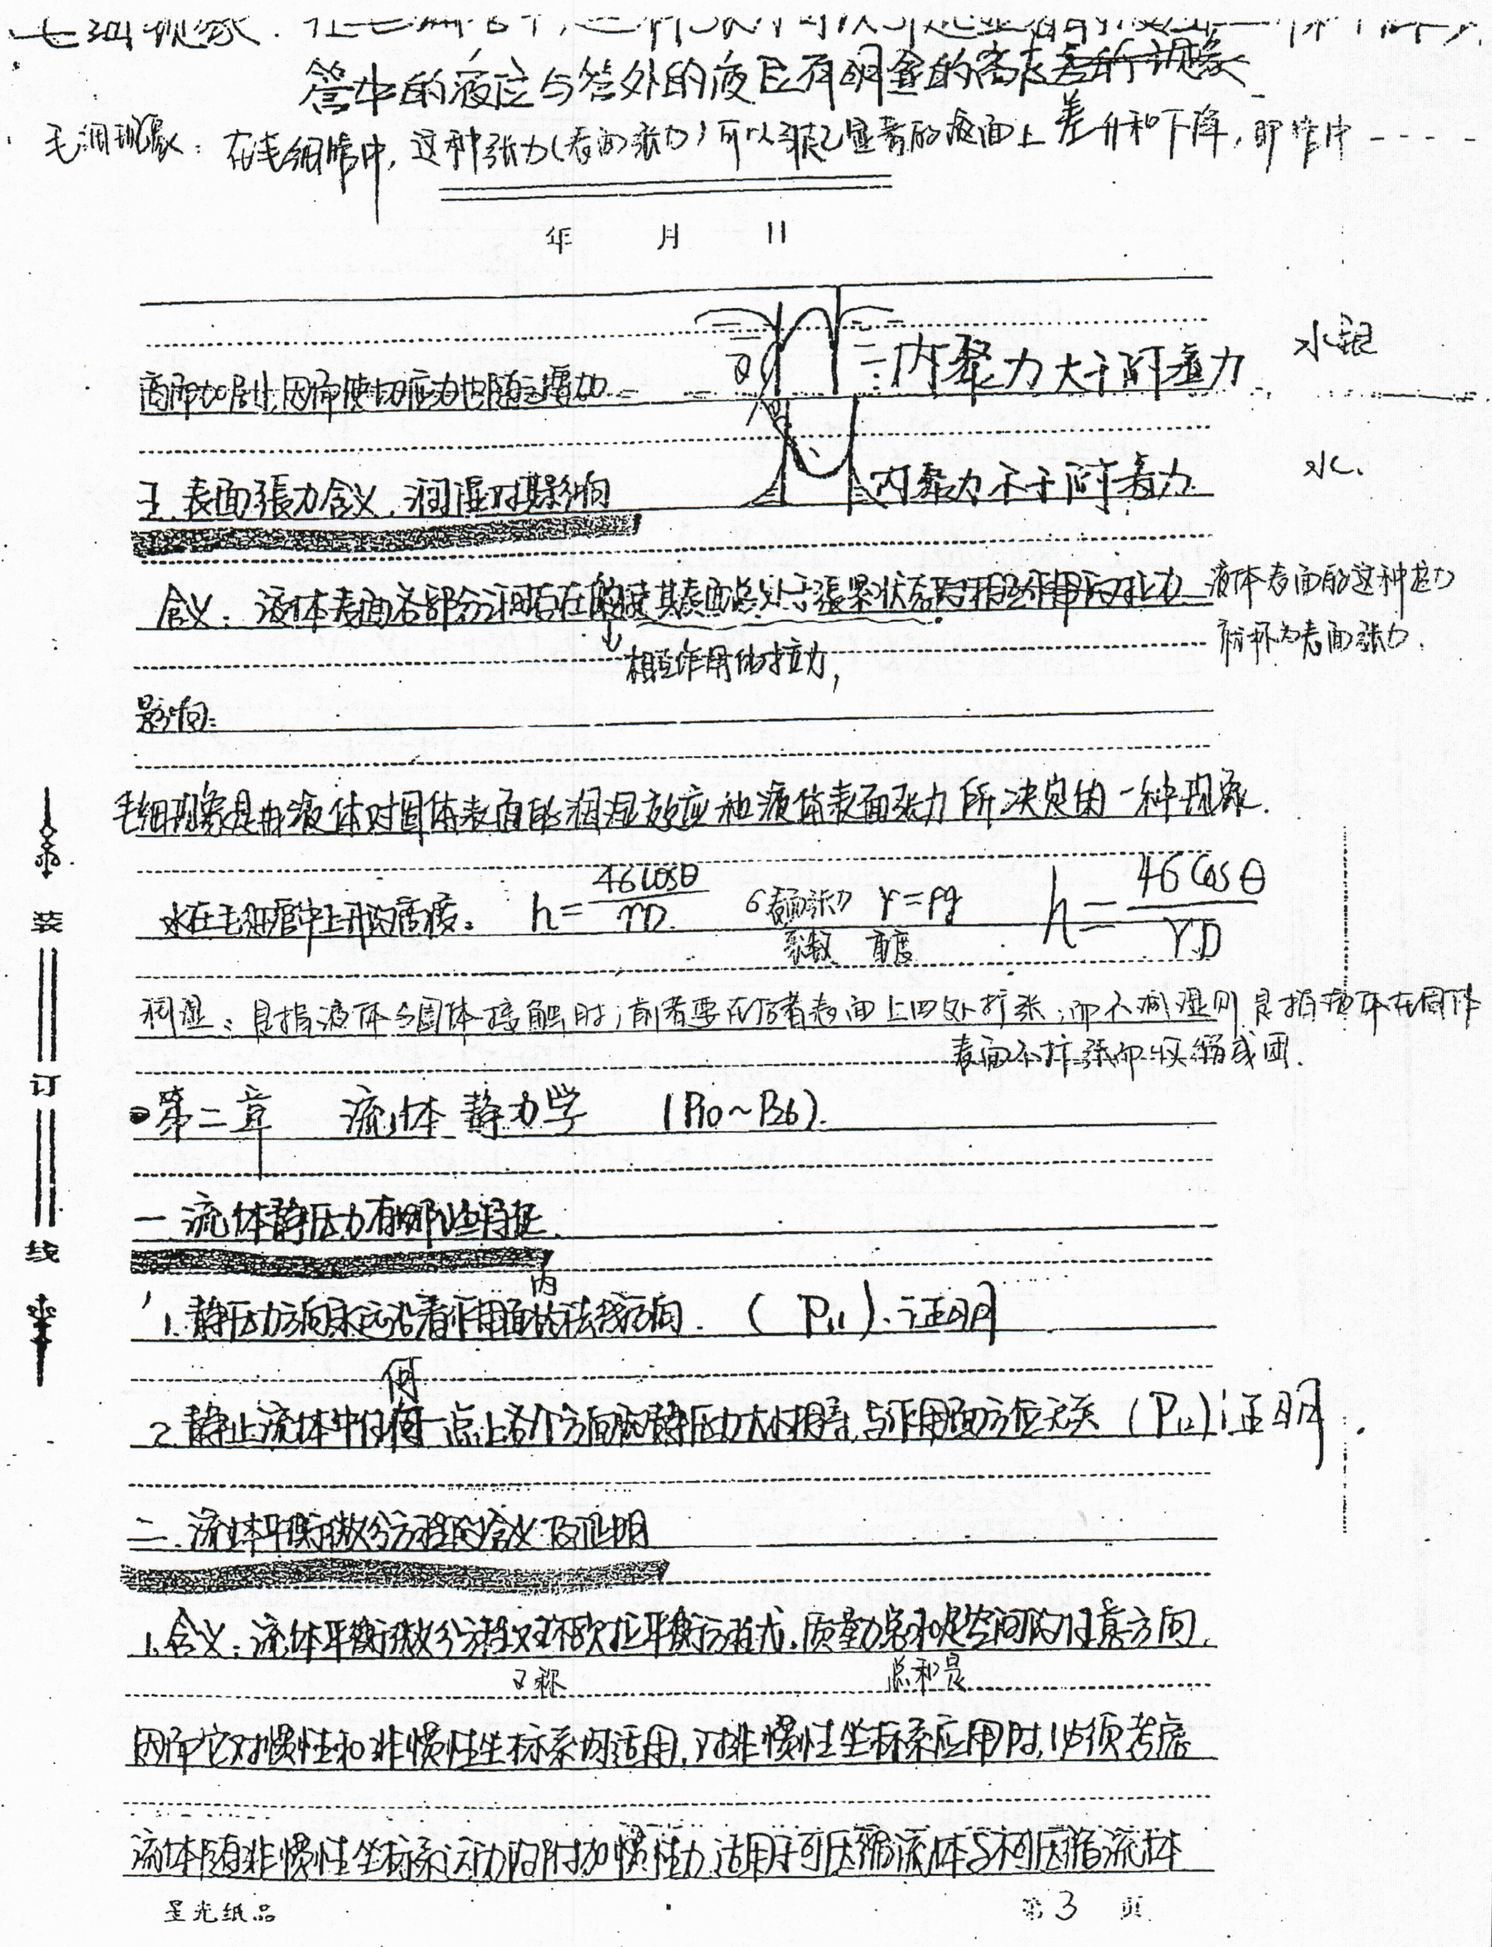 毛细现象：在毛细管中，这种张力（表面张力）可以引起显著的液面上升和下降，即管中----
管中的液位与管外的液位有明显的高度差的现象
差
年 月 日
高而加剧，因而使切应力也随之增加
内聚力大于附着力 水银
五、表面張力含义，润湿对其影响
内聚力小于附着力 水
含义：液体表面各部分之间存在的使其表面总处于張紧状态的相互作用的拉力 液体表面的这种拉力
相互作用的拉力，
就称为表面张力.
影响：
毛细现象是由液体对固体表面的润湿效应和液体表面张力所决定的一种现象.
水在毛细管中上升的高度： h=4σcosθ/γD σ表面张力系数 γ=ρg 重度 h=4σcosθ/γD
润湿：是指液体与固体接触时，前者要在后者表面上四处扩张；而不润湿则是指液体在固体
表面不扩张而收缩成团.
第二章 流体静力学 （P10~P26）.
一 流体静压力有哪些特征
1. 静压力方向永远沿着作用面的内法线方向. （P11）.证明
2. 静止流体中任何一点上各个方向的静压力大小相等，与作用面方位无关（P12）证明.
何
二. 流体平衡微分方程的含义及证明
1. 含义：流体平衡微分方程又称欧拉平衡方程式. 质量力总和是空间的任意方向，
又称 总和是
因而它对惯性和非惯性坐标系均适用，对非惯性坐标系应用时，必须考虑
流体随非惯性坐标系运动的附加惯性力 适用于可压缩流体与不可压缩流体
装
订
线
星光纸品 第3页